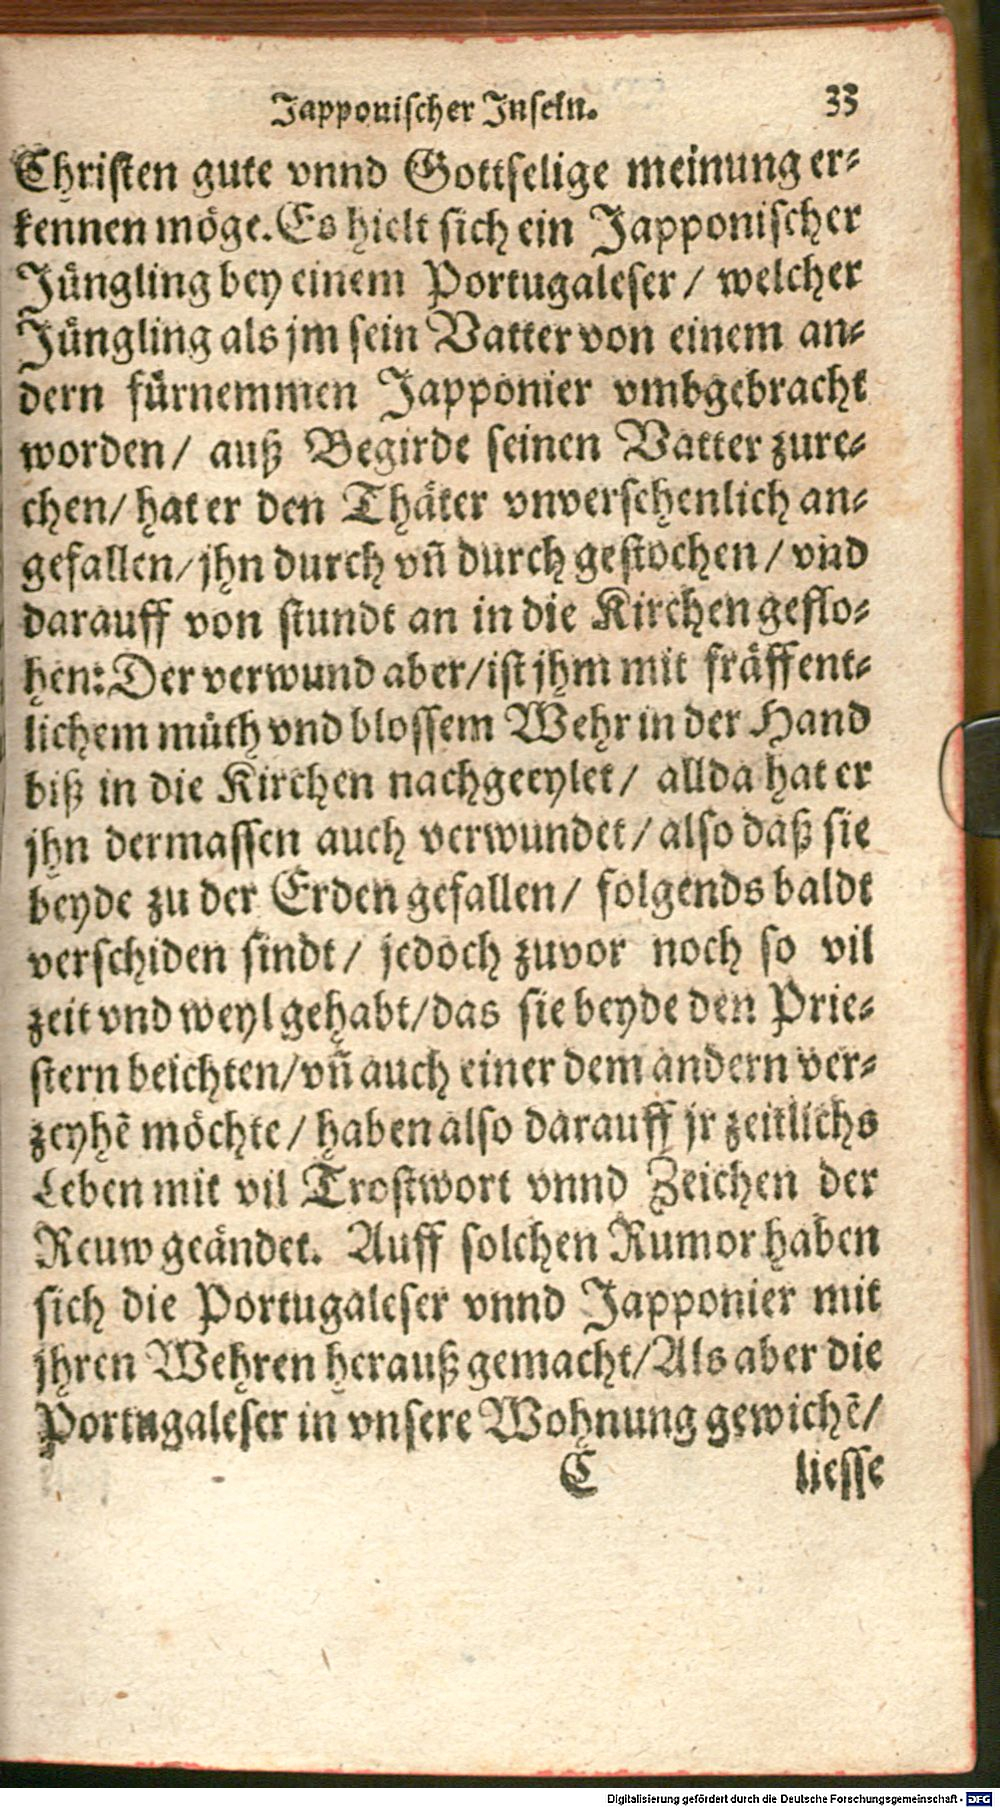 Japponischer Inseln. 33
Christen gute vnnd Gottselige meinung er⸗
kennen möge. Es hielt sich ein Japponischer
Jüngling bey einem Portugaleser / welcher
Jüngling als jm sein Vatter von einem an⸗
dern fürnemmen Japponier vmbgebracht
worden / auß Begirde seinen Vatter zure⸗
chen / hat er den Thäter vnversehenlich an⸗
gefallen / jhn durch vñ durch gestochen / vnd
darauff von stundt an in die Kirchen geflo⸗
hen: Der verwund aber / ist jhm mit fräffent⸗
lichem můth vnd blossem Wehr in der Hand
biß in die Kirchen nachgeeylet / allda hat er
jhn dermassen auch verwundet / also daß sie
beyde zu der Erden gefallen / folgends baldt
verschiden sindt / jedoch zuvor noch so vil
zeit vnd weyl gehabt / das sie beyde den Prie⸗
stern beichten / vñ auch einer dem andern ver⸗
zeyhẽ möchte / haben also darauff jr zeitlichs
Leben mit vil Trostwort vnnd Zeichen der
Reuw geändet. Auff solchen Rumor haben
sich die Portugaleser vnnd Japponier mit
jhren Wehren herauß gemacht / Als aber die
Portugaleser in vnsere Wohnung gewichẽ /
C liesse
Digitalisierung gefördert durch die Deutsche Forschungsgemeinschaft - DFG